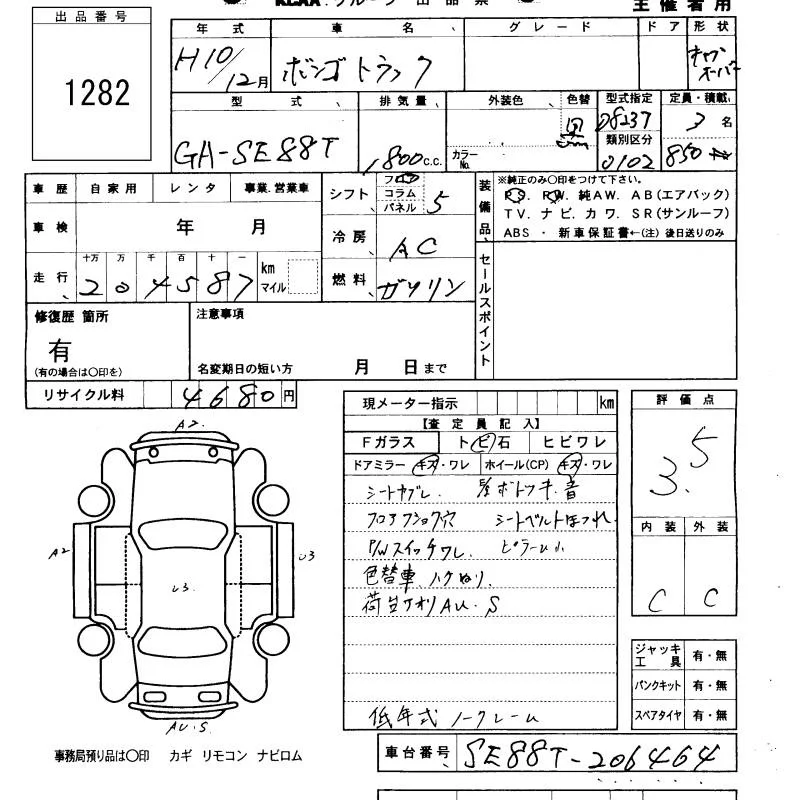 出品番号
1282
主催者用
年式 車名 グレード ドア 形状
H10/12月 ボンゴトラック キャブオーバー
型式 排気量 外装色 色替 型式指定 定員・積載
GA-SE88T 1800c.c. カラーNo. 黒 08237 3名
類別区分
0102 850
車歴 自家用 レンタ 事業.営業車
車検 年 月
走行 十万 万 千 百 十 一 km マイル
204587
シフト フロア コラム パネル 5
冷房 AC
燃料 ガソリン
装備品
※純正のみ〇印をつけて下さい。
P.S. P.W. 純AW. AB(エアバック)
TV. ナビ. カワ. SR(サンルーフ)
ABS ・ 新車保証書←(注) 後日送りのみ
セールスポイント
修復歴 箇所
有
(有の場合は〇印を)
注意事項
名変期日の短い方 月 日まで
リサイクル料 4680円
現メーター指示 km
【査定員記入】
Fガラス トビ石 ヒビワレ
ドアミラー キズ・ワレ ホイール(CP) キズ・ワレ
シートヤブレ
フロアフショク穴 シートベルトほつれ
P/Wスイッチワレ ピラー小
色替車 ハケぬり.
荷台サビ AU.S
低年式 ノークレーム
評価点
3.5
内装 外装
C C
ジャッキ工具 有・無
パンクキット 有・無
スペアタイヤ 有・無
A2
A2
U3
U3
AU.S
事務局預り品は〇印 カギ リモコン ナビロム
車台番号 SE88T-206464